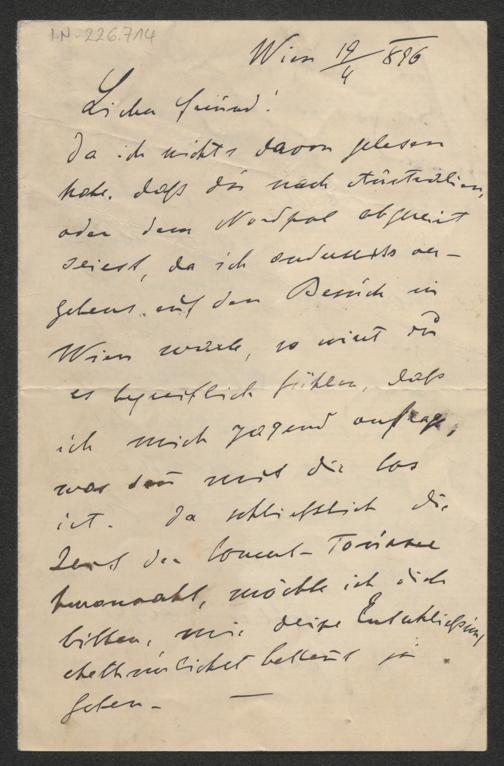 I.N. 226.714
Wien 19/4 896
Lieber Freund!
Da ich nichts davon gelesen
habe, daß du nach Australien,
oder dem Nordpol abgereist
seiest, da ich anderseits ver-
gebens auf den Besuch in
Wien warte, so wirst du
es begreiflich fühlen, daß
ich mich zagend anfrage,
was denn mit dir los
ist. Da schließlich die
Zeit der Concert-Tournee
herannaht, möchte ich dich
bitten, mir deine Entschließung
ehethunlichst bekannt zu
geben. —